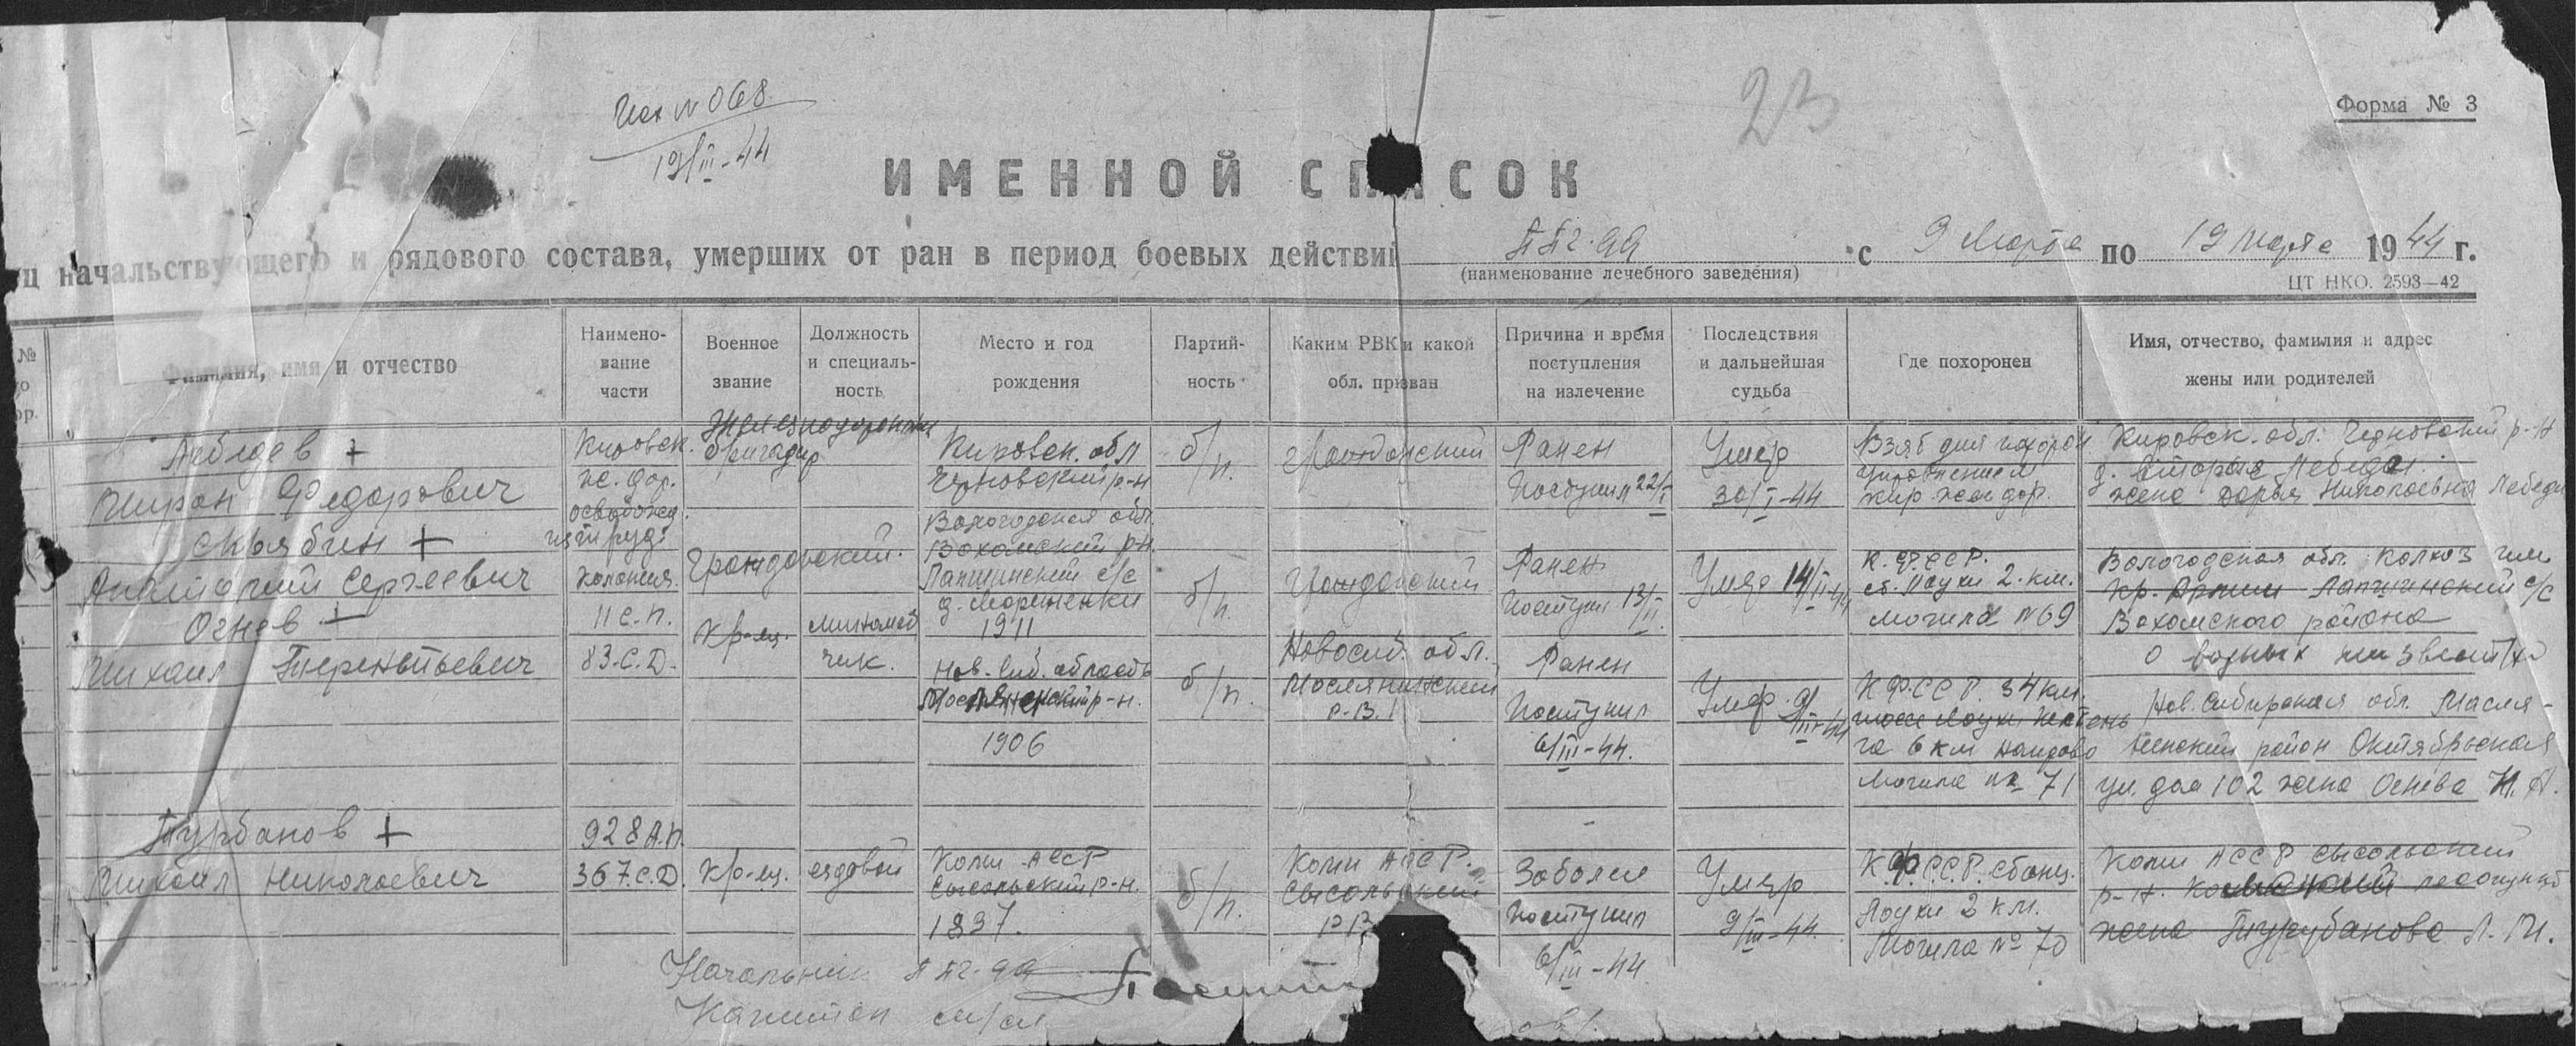 Исх N 068
19/III-44
23
Форма № 3
ИМЕННОЙ СПИСОК
начальствующего и рядового состава, умерших от ран в период боевых действий ППГ-99 с 9 Марта по 19 марта 1944 г.
(наименование лечебного заведения)
ЦТ НКО. 2593—42
№
Фамилия, имя и отчество
Наимено-
вание
части
Военное
звание
Должность
и специаль-
ность
Место и год
рождения
Партий-
ность
Каким РВК и какой
обл. призван
Причина и время
поступления
на излечение
Последствия
и дальнейшая
судьба
Где похоронен
Имя, отчество, фамилия и адрес
жены или родителей
Лебедев +
Мирон Федорович
Кировск.
ж. дор.
Железнодорожный
бригадир
Кировск. обл
Черновский р-н
б/п.
гражданский
Ранен
Поступил 22/I
Умер
30/I-44
Взят для похорон
управлением
Кир. жел дор.
Кировск. обл. Черновский р-н
д. Вторые Лебеди
жена Дарья Николаевна
Скрябин +
Анатолий Сергеевич
освобожд.
колония.
Гражданский.
Вологодская обл.
Вохомский р-н.
Лапшинский с/с
д. Мариненки
1911
б/п.
Гражданский
Ранен
Поступил 13/II.
Умер 14/II-44
К.Ф.ССР.
ст. Лоухи 2. км.
могила N 69
Вологодская обл. колхоз им
Кр. Армии Лапшинский с/с
Вохомского района
о родных неизвестно
Огнев +
Михаил Терентьевич
11 с.п.
83.С.Д.
Кр-ец.
миномет
чик.
Нов.-Сиб. область
р-н.
1906
б/п.
Новосиб. обл.
Маслянинский
Р.В.
Ранен
Поступил
6/III-44.
Умер. 9/III-44
К.Ф.ССР. 34 км.
шоссе Лоухи Кестень
га 6 км
Могила № 71
Нов. Сибирская обл. Масля-
нинский район Октябрьская
ул. дом 102 жена Огнева
Турбанов +
Михаил Николаевич
928 А.П.
367.С.Д.
Кр-ец.
ездовой
Коми АССР
Сысольский р-н.
1897.
б/п.
Коми АССР.
Сысольский
Заболел
Поступил
6/III-44
Умер
9/III-44.
К.Ф.С.С.Р. станц.
Лоухи 2 км.
Могила № 70
Коми АССР Сысольский
р-н. лесопункт
жена Турубанова Л. М.
Начальник ППГ-99
Капитан м/сл